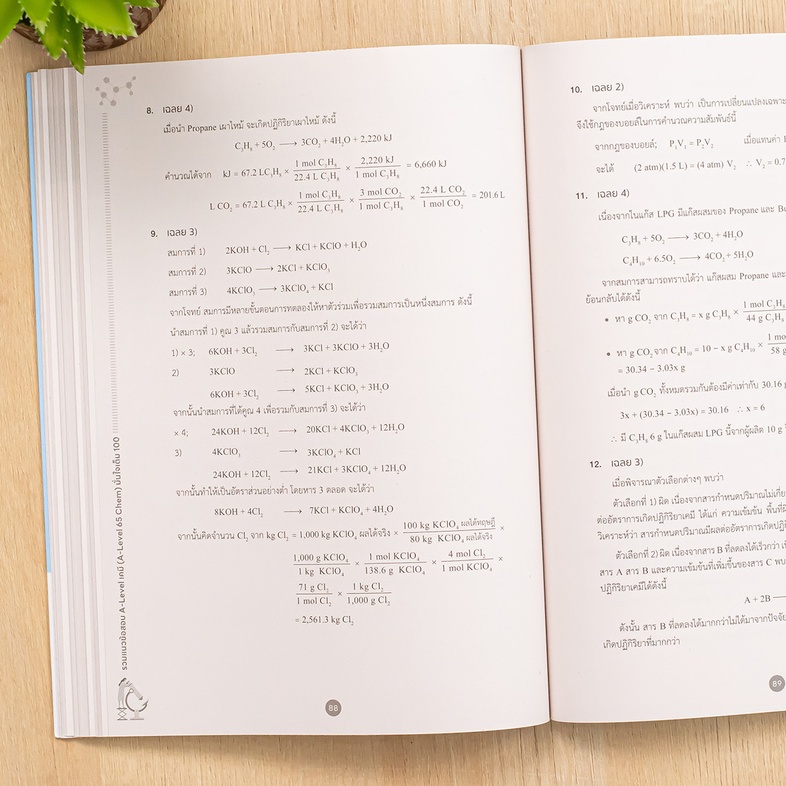 8. เฉลย 4)
เมื่อนำ Propane เผาไหม้ จะเกิดปฏิกิริยาเผาไหม้ ดังนี้
C₃H₈ + 5O₂ ⟶ 3CO₂ + 4H₂O + 2,220 kJ
คำนวณได้จาก kJ = 67.2 LC₃H₈ × 1 mol C₃H₈ / 22.4 L C₃H₈ × 2,220 kJ / 1 mol C₃H₈ = 6,660 kJ
L CO₂ = 67.2 L C₃H₈ × 1 mol C₃H₈ / 22.4 L C₃H₈ × 3 mol CO₂ / 1 mol C₃H₈ × 22.4 L CO₂ / 1 mol CO₂ = 201.6 L
9. เฉลย 3)
สมการที่ 1) 2KOH + Cl₂ ⟶ KCl + KClO + H₂O
สมการที่ 2) 3KClO ⟶ 2KCl + KClO₃
สมการที่ 3) 4KClO₃ ⟶ 3KClO₄ + KCl
จากโจทย์ สมการมีหลายขั้นตอนการทดลองให้หาตัวร่วมเพื่อรวมสมการเป็นหนึ่งสมการ ดังนี้
นำสมการที่ 1) คูณ 3 แล้วรวมสมการกับสมการที่ 2) จะได้ว่า
1) × 3; 6KOH + 3Cl₂ ⟶ 3KCl + 3KClO + 3H₂O
2) 3KClO ⟶ 2KCl + KClO₃
6KOH + 3Cl₂ ⟶ 5KCl + KClO₃ + 3H₂O
จากนั้นนำสมการที่ได้คูณ 4 เพื่อรวมกับสมการที่ 3) จะได้ว่า
× 4; 24KOH + 12Cl₂ ⟶ 20KCl + 4KClO₃ + 12H₂O
3) 4KClO₃ ⟶ 3KClO₄ + KCl
24KOH + 12Cl₂ ⟶ 21KCl + 3KClO₄ + 12H₂O
จากนั้นทำให้เป็นอัตราส่วนอย่างต่ำ โดยหาร 3 ตลอด จะได้ว่า
8KOH + 4Cl₂ ⟶ 7KCl + KClO₄ + 4H₂O
จากนั้นคิดจำนวน Cl₂ จาก kg Cl₂ = 1,000 kg KClO₄ ผลได้จริง × 100 kg KClO₄ ผลได้ทฤษฎี / 80 kg KClO₄ ผลได้จริง ×
1,000 g KClO₄ / 1 kg KClO₄ × 1 mol KClO₄ / 138.6 g KClO₄ × 4 mol Cl₂ / 1 mol KClO₄ ×
71 g Cl₂ / 1 mol Cl₂ × 1 kg Cl₂ / 1,000 g Cl₂
= 2,561.3 kg Cl₂
รวมแนวข้อสอบ A-Level เคมี (A-Level 65 Chem) มั่นใจเต็ม 100
88
10. เฉลย 2)
จากโจทย์เมื่อวิเคราะห์ พบว่า เป็นการเปลี่ยนแปลงเฉพาะ
จึงใช้กฎของบอยล์ในการคำนวณความสัมพันธ์นี้
จากกฎของบอยล์; P₁V₁ = P₂V₂ เมื่อแทนค่า
จะได้ (2 atm)(1.5 L) = (4 atm) V₂ ∴ V₂ = 0.7
11. เฉลย 4)
เนื่องจากในแก๊ส LPG มีแก๊สผสมของ Propane และ
C₃H₈ + 5O₂ ⟶ 3CO₂ + 4H₂O
C₄H₁₀ + 6.5O₂ ⟶ 4CO₂ + 5H₂O
จากสมการสามารถทราบได้ว่า แก๊สผสม Propane และ
ย้อนกลับได้ดังนี้
• หา g CO₂ จาก C₃H₈ = x g C₃H₈ × 1 mol C₃H₈ / 44 g C₃H₈
• หา g CO₂ จาก C₄H₁₀ = 10 − x g C₄H₁₀ × 1 mo / 58 g
= 30.34 − 3.03x g
เมื่อนำ g CO₂ ทั้งหมดรวมกันต้องมีค่าเท่ากับ 30.16
3x + (30.34 − 3.03x) = 30.16 ∴ x = 6
∴ มี C₃H₈ 6 g ในแก๊สผสม LPG นี้จากผู้ผลิต 10 g
12. เฉลย 3)
เมื่อพิจารณาตัวเลือกต่างๆ พบว่า
ตัวเลือกที่ 1) ผิด เนื่องจากสารกำหนดปริมาณไม่เกี่ย
ต่ออัตราการเกิดปฏิกิริยาเคมี ได้แก่ ความเข้มข้น พื้นที่
วิเคราะห์ว่า สารกำหนดปริมาณมีผลต่ออัตราการเกิดปฏิกิ
ตัวเลือกที่ 2) ผิด เนื่องจากสาร B ที่ลดลงได้เร็วกว่า
สาร A สาร B และความเข้มข้นที่เพิ่มขึ้นของสาร C พบ
ปฏิกิริยาเคมีได้ดังนี้
A + 2B
ดังนั้น สาร B ที่ลดลงได้มากกว่าไม่ได้มาจากปัจจัย
เกิดปฏิกิริยาที่มากกว่า
89